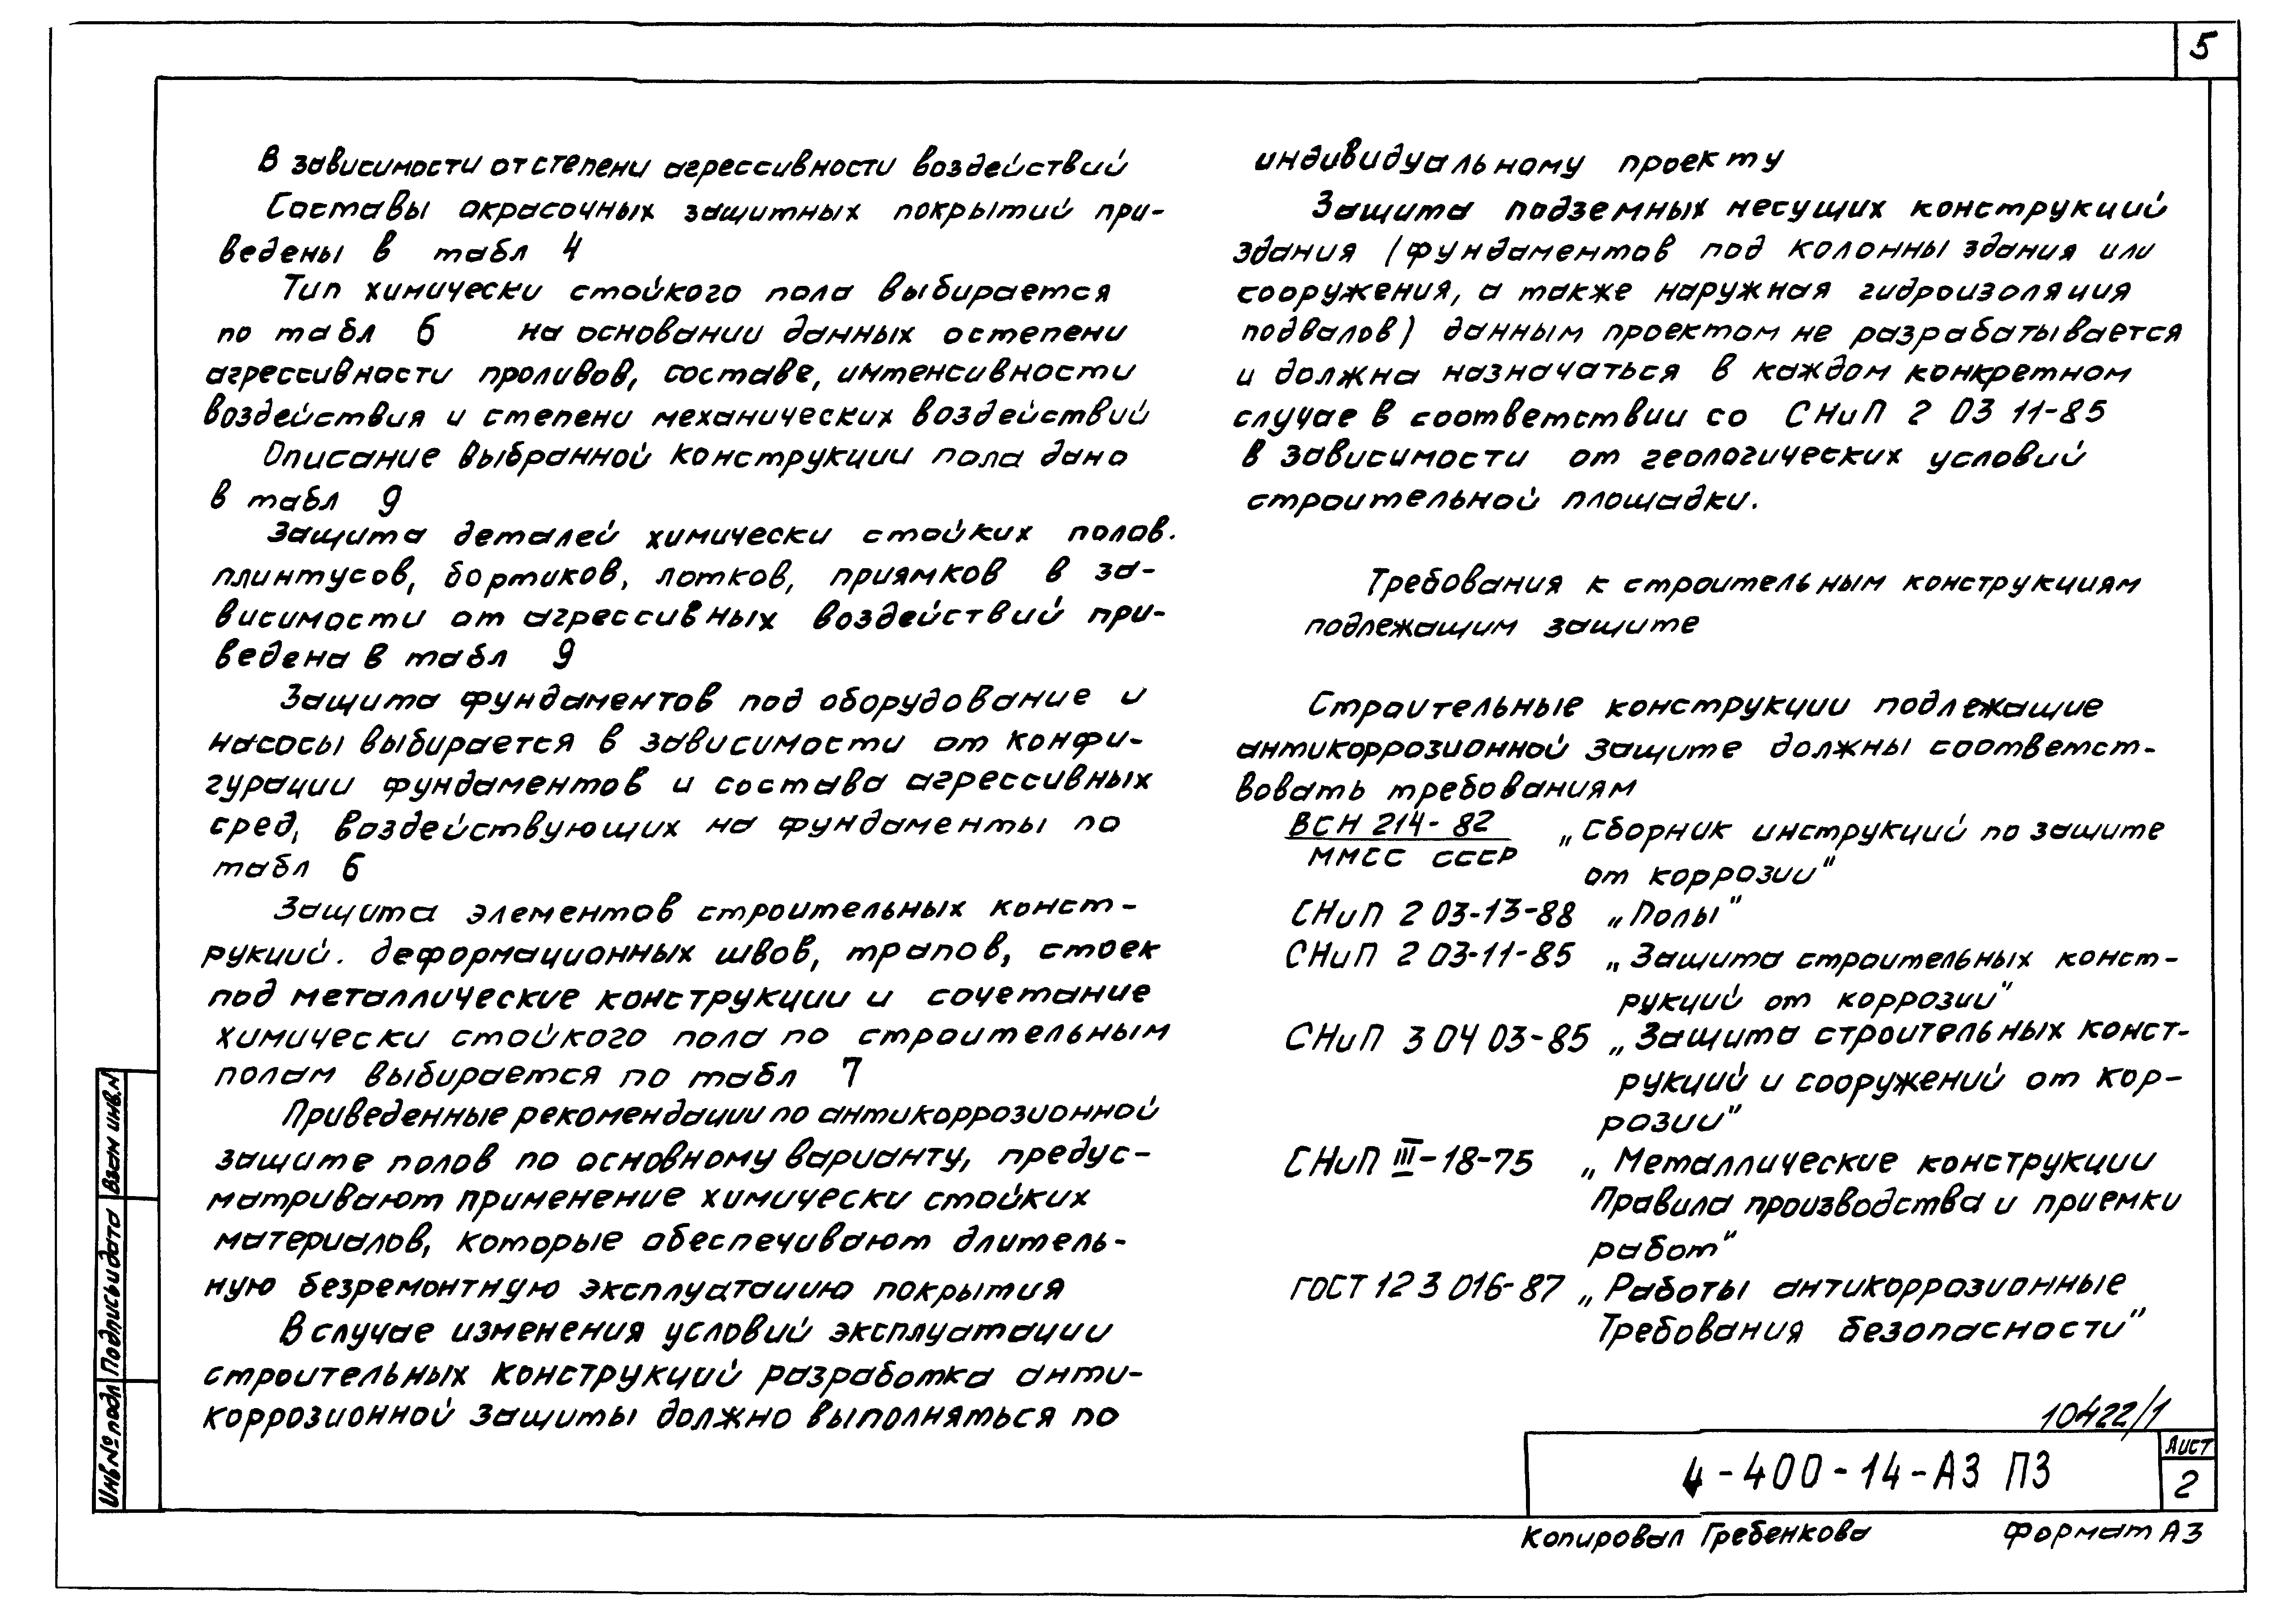 5
В зависимости от степени агрессивности воздействий
Составы окрасочных защитных покрытий при-
ведены в табл 4
Тип химически стойкого пола выбирается
по табл 6 на основании данных о степени
агрессивности проливов, составе, интенсивности
воздействия и степени механических воздействий
Описание выбранной конструкции пола дано
в табл 9
Защита деталей химически стойких полов.
плинтусов, бортиков, лотков, приямков в за-
висимости от агрессивных воздействий при-
ведена в табл 9
Защита фундаментов под оборудование и
насосы выбирается в зависимости от конфи-
гурации фундаментов и состава агрессивных
сред, воздействующих на фундаменты по
табл 6
Защита элементов строительных конст-
рукций. деформационных швов, трапов, стоек
под металлические конструкции и сочетание
химически стойкого пола по строительным
полам выбирается по табл 7
Приведенные рекомендации по антикоррозионной
защите полов по основному варианту, предус-
матривают применение химически стойких
материалов, которые обеспечивают длитель-
ную безремонтную эксплуатацию покрытия
В случае изменения условий эксплуатации
строительных конструкций разработка анти-
коррозионной защиты должно выполняться по
индивидуальному проекту
Защита подземных несущих конструкций
здания (фундаментов под колонны здания или
сооружения, а также наружная гидроизоляция
подвалов) данным проектом не разрабатывается
и должна назначаться в каждом конкретном
случае в соответствии со СНиП 2 03 11-85
в зависимости от геологических условий
строительной площадки.
Требования к строительным конструкциям
подлежащим защите
Строительные конструкции подлежащие
антикоррозионной защите должны соответст-
вовать требованиям
ВСН 214-82 „Сборник инструкций по защите
ММСС СССР
от коррозии"
СНиП 2 03-13-88 „Полы"
СНиП 2 03-11-85 „Защита строительных конст-
рукций от коррозии"
СНиП 3 04 03-85 „Защита строительных конст-
рукций и сооружений от кор-
розии"
СНиП III-18-75 „Металлические конструкции
Правила производства и приемки
работ"
ГОСТ 12 3 016-87 „Работы антикоррозионные
Требования безопасности"
10422/1
4-400-14-АЗ ПЗ
Лист
2
Копировал Гребенкова Формат А3
Инв № подл Подпись и дата Взам инв. N